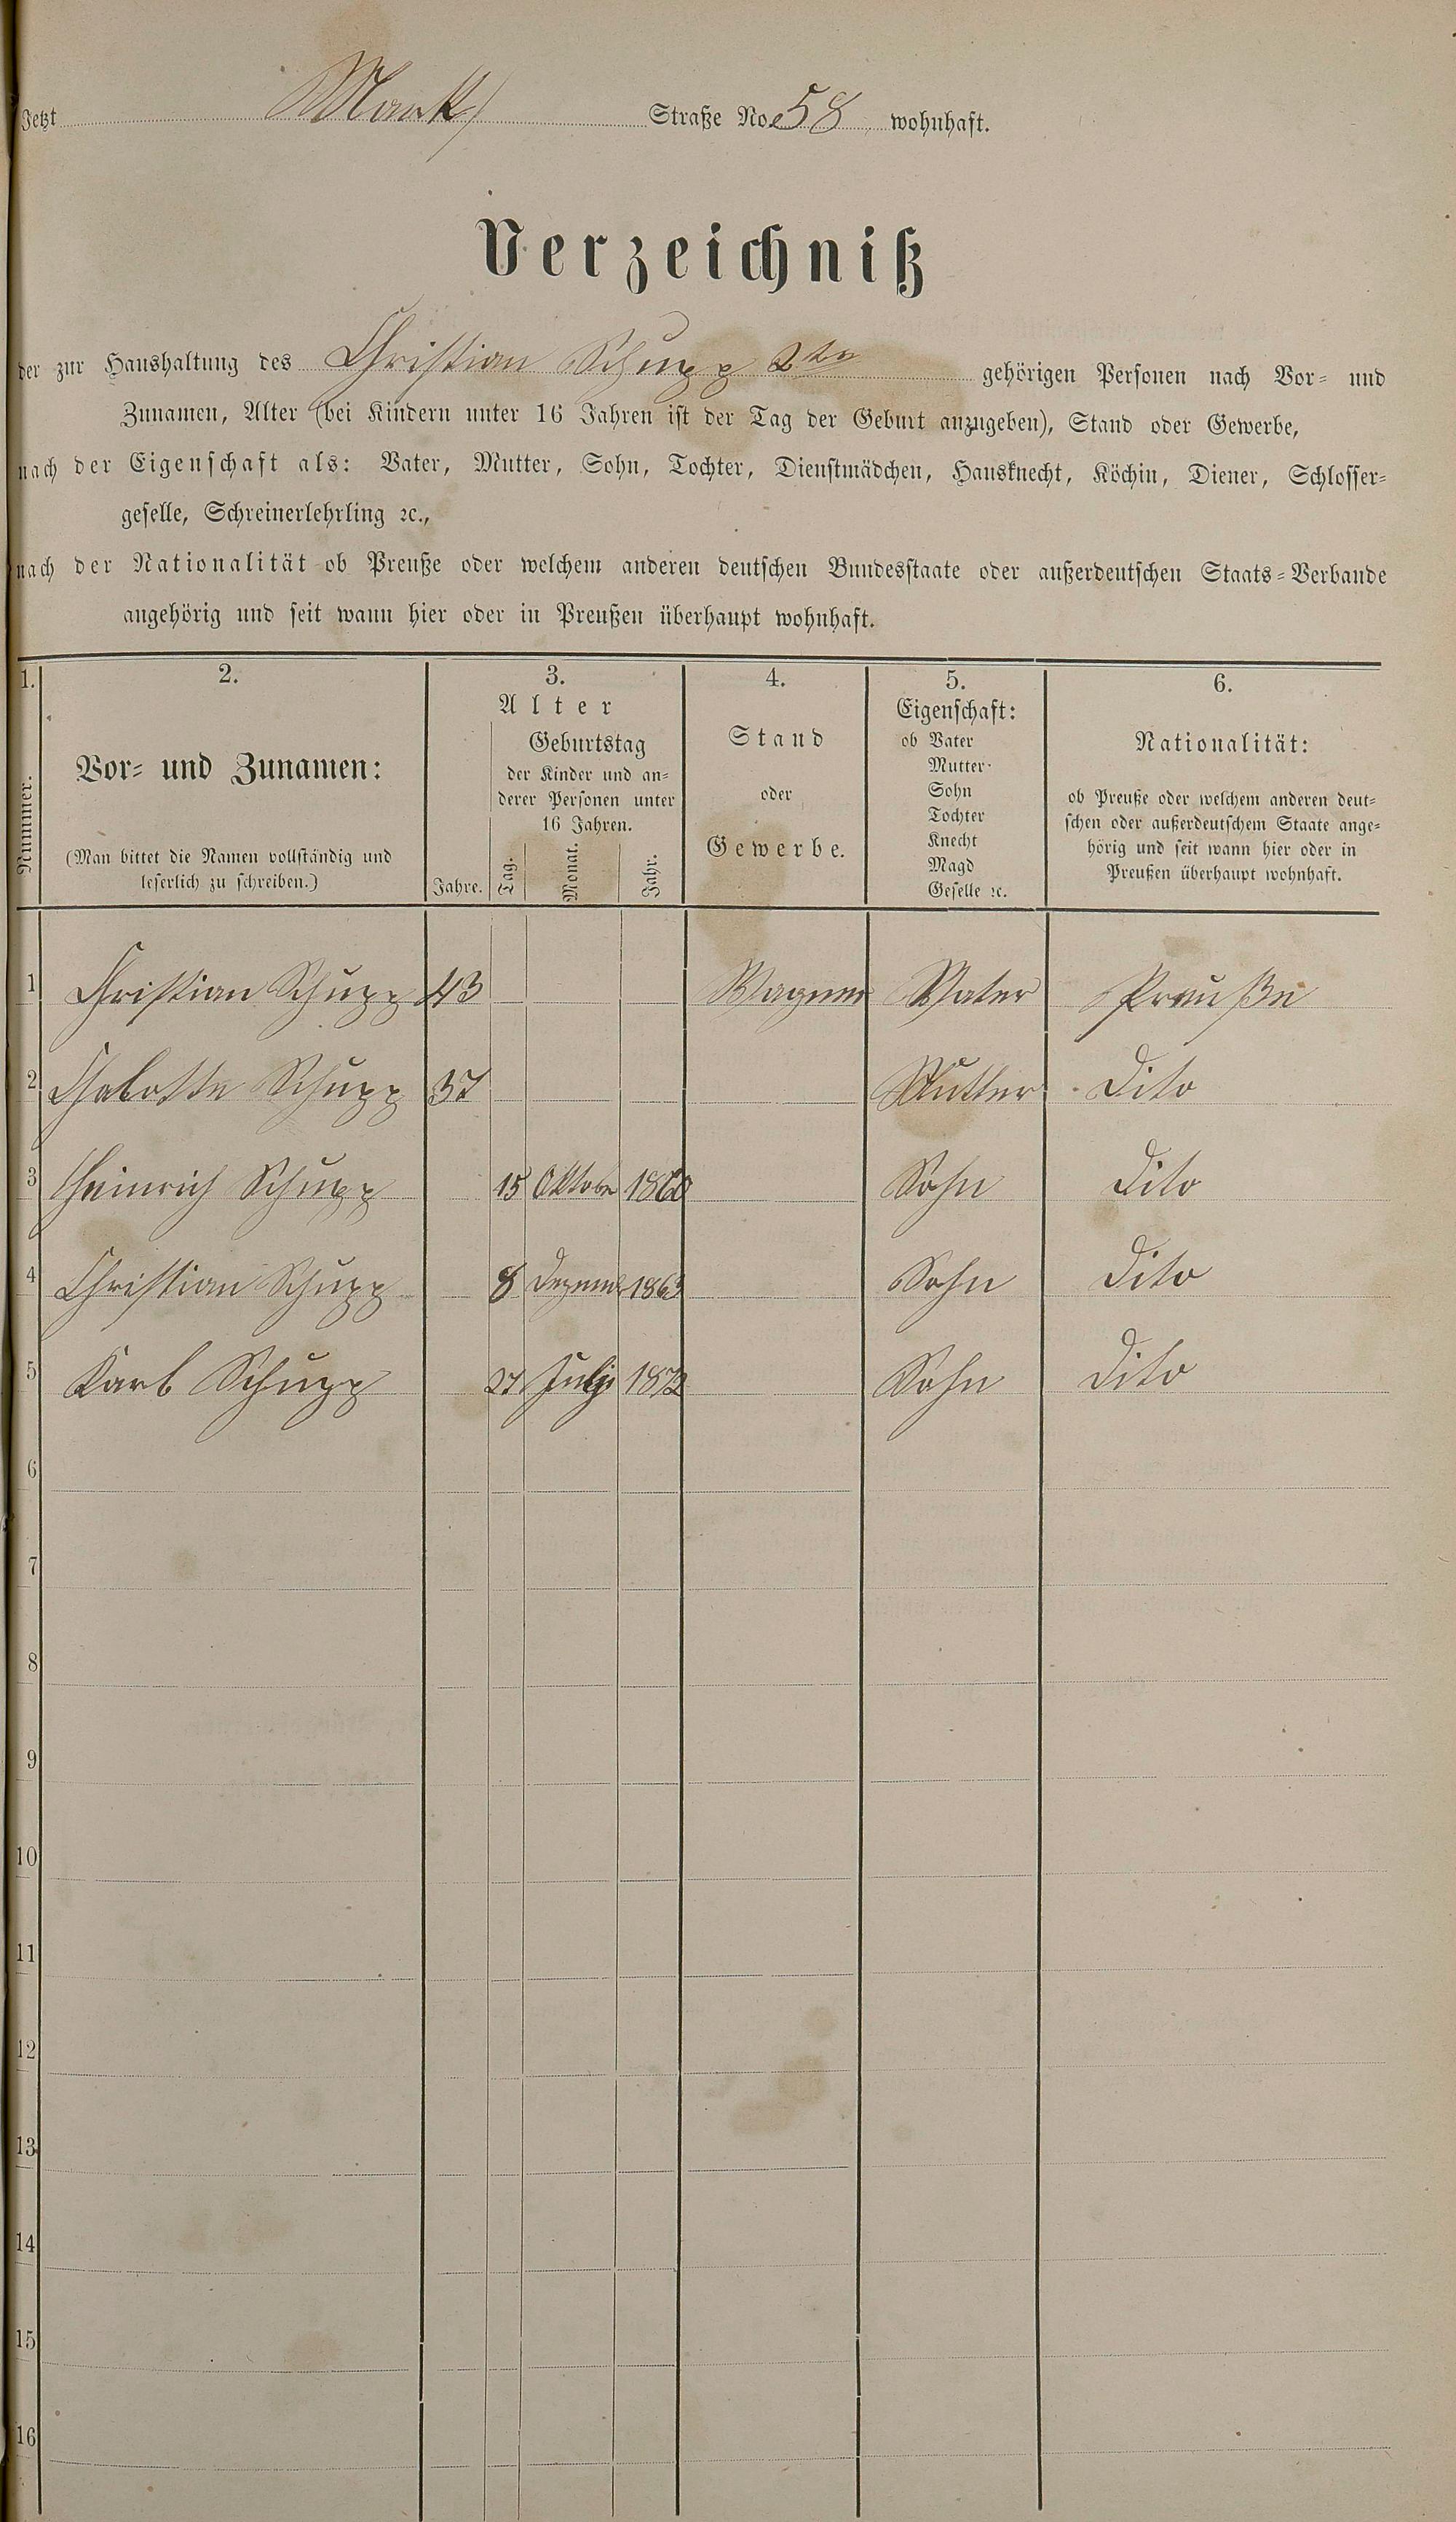 Jetzt Markt Straße No. 58 wohnhaft.
Verzeichniß
der zur Haushaltung des Christian Schupp 2ter gehörigen Personen nach Vor- und
Zunamen, Alter (bei Kindern unter 16 Jahren ist der Tag der Geburt anzugeben), Stand oder Gewerbe,
nach der Eigenschaft als: Vater, Mutter, Sohn, Tochter, Dienstmädchen, Hausknecht, Köchin, Diener, Schlosser-
geselle, Schreinerlehrling ꝛc.,
nach der Nationalität ob Preuße oder welchem anderen deutschen Bundesstaate oder außerdeutschen Staats-Verbande
angehörig und seit wann hier oder in Preußen überhaupt wohnhaft.
1.
Nummer.
2.
Vor- und Zunamen:
(Man bittet die Namen vollständig und
leserlich zu schreiben.)
3.
Alter
Jahre.
Geburtstag
der Kinder und an-
derer Personen unter
16 Jahren.
Tag. Monat. Jahr.
4.
Stand
oder
Gewerbe.
5.
Eigenschaft:
ob Vater
Mutter
Sohn
Tochter
Knecht
Magd
Geselle ꝛc.
6.
Nationalität:
ob Preuße oder welchem anderen deut-
schen oder außerdeutschem Staate ange-
hörig und seit wann hier oder in
Preußen überhaupt wohnhaft.
1 Christian Schupp 43 Wagner Vater Preuße
2 Schupp 37 Mutter Dito
3 Heinrich Schupp 15 Oktober 1860 Sohn Dito
4 Christian Schupp 8 1863 Sohn Dito
5 Karl Schupp 27 July 1872 Sohn Dito
6
7
8
9
10
11
12
13
14
15
16